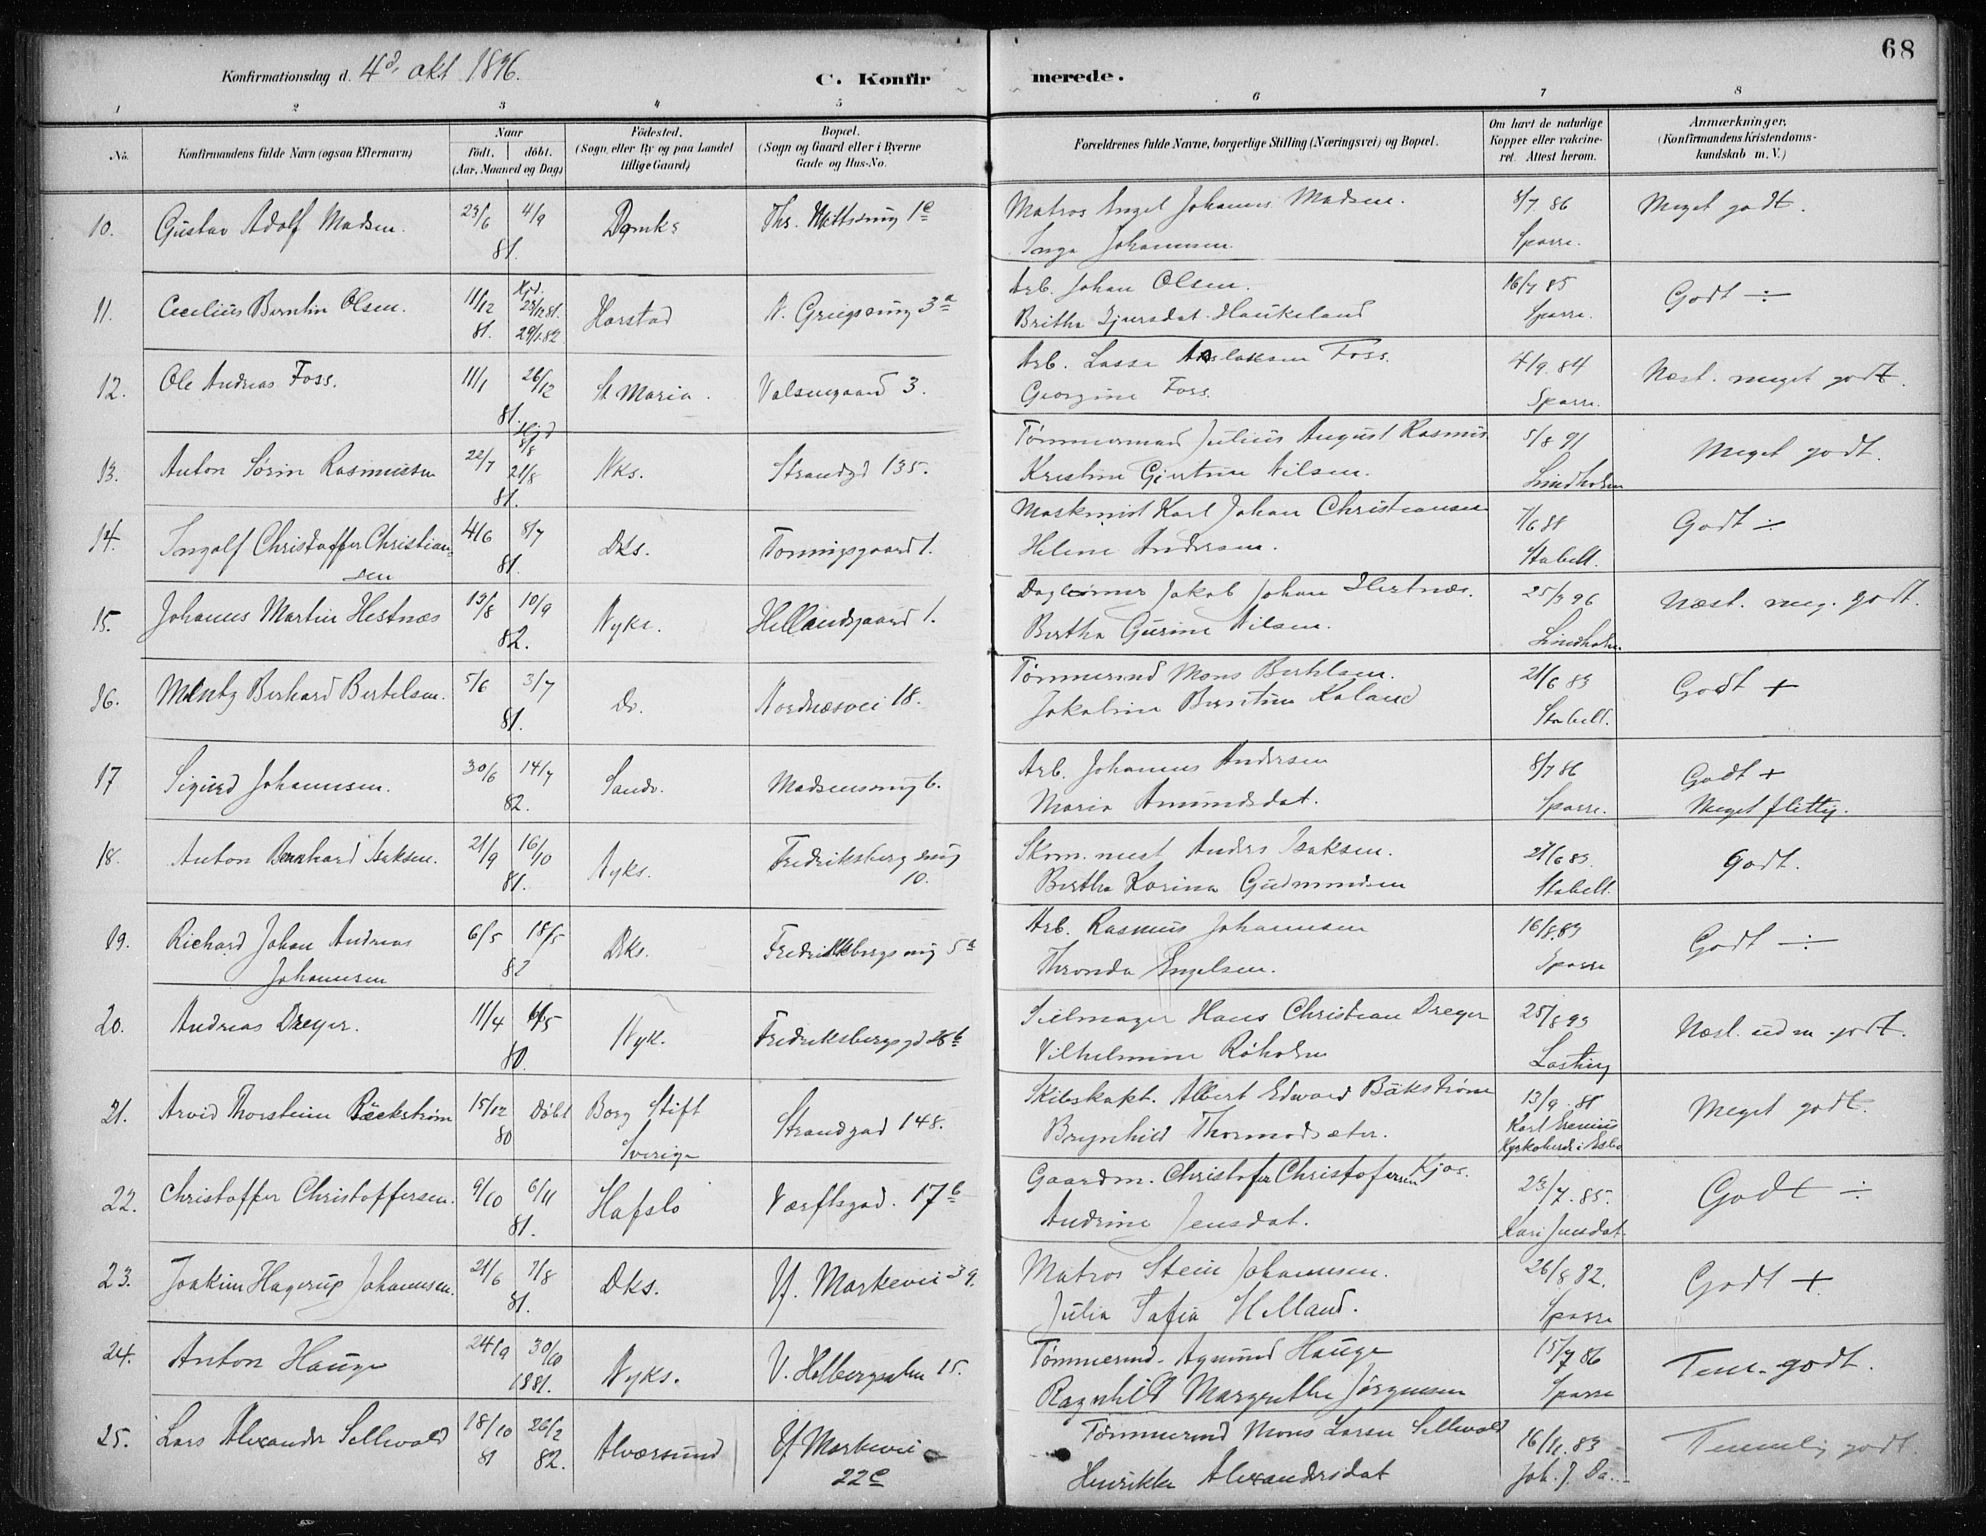 68
Konfirmationsdag d. 4d. okt 1896.
C. Konfirmerede.
1 2 3 4 5 6 7 8
No.
Konfirmandens fulde Navn (ogsaa Efternavn)
Naar
födt. döbt.
(Aar, Maaned og Dag)
Födested.
(Sogn eller By og paa Landet
tillige Gaard)
Bopæl.
(Sogn og Gaard eller i Byerne
Gade og Hus-No.
Forældrenes fulde Navne, borgerlige Stilling (Næringsvei) og Bopæl.
Om havt de naturlige
Kopper eller vakcine-
ret. Attest herom.
Anmærkninger.
(Konfirmandens Kristendoms-
kundskab m. V.)
10. Gustav Adolf Madsen. 23/6 4/9 Domks 1c Matros Engel Johannes Madsen. 8/7 86 Meget godt.
81. Inga Johannesen. Sparre.
11. Cecilius Berntin Olsen. 11/12 Hjd. 29/12 81. Harstad N. Griegsmug 3a Arb. Johan Olsen. 16/7 85 Godt ÷
81. 29/1 82 Britha Haukeland Sparre.
12. Ole Andreas Foss. 11/1 26/12 St Maria. 3. Arb. Lasse Aslaksen Foss. 4/9. 84 Næst. meget godt.
81. Georgine Foss. Sparre.
13. Anton Sørin Rasmussen 22/7 Hjd 8/8 21/8 Nks. Strandgd 135. Tømmermand Julius August Rasmus. 5/8 91 Meget godt.
81. Kristine Gjertine Nilsen. Lindholm
14. Ingolf Christoffer Christian- 4/6 8/7 Dks. Tonningsgaard 1. Maskinist Karl Johan Christiansen 7/6 88 Godt ÷
sen 81. Helene Andersen. Stabell.
15. Johannes Martin Hestnæs 13/8 10/9 Nyks. Hellandsgaard 1. Jakob Johan Hestnæs. 25/3 96 Næst. meg. godt.
82. Bertha Gurine Nilsen. Lindholm.
16. Berhard Bertelsen. 5/6 3/7 Do. Nordnæsvei 18. Tømmermd Mons Berthlsen. 21/6 83 Godt +
81. Jakobine Berntine Kaland Stabell.
17 Sigurd Johannesen. 30/6 14/7 Sandv. Madsensmug 6. Arb. Johannes Andersen 8/7 86 Godt +
82. Maria Amundsdat. Sparre. Meget flittig.
18. Anton Bernhard Isaksen. 21/9 16/10 Nyks. Fredriksberg smug Skom. mest Anders Isaksen. 21/6 83. Godt.
81. 10. Bertha Karina Gudmundsen Stabell.
19. Richard Johan Andreas 6/5 18/5 Dks. Fredriksbergsmug 5a Arb. Rasmus Johannesen 16/8 83 Godt ÷
Johannesen 82 Thronda Engelsen. Sparre
20. Andreas Dreyer. 11/4 6/5 Nyk. Fredriksbergsgd 28b Seilmager Hans Christian Dreyer 25/8 93 Næst. udm. godt.
80. Vilhelmine Røholm
21. Arvid Thorsteim Bäckström 15/12 Döbt Borg Stift Strandgad 148. Skibskapt. Albert Edward Bäkström 13/9. 81 Meget godt.
80 Sverige Brynhild Thormodsæter. Karl
22. Christoffer Christoffersen. 9/10 6/11 Hafslo Værftsgad. 17b Gaardm. Christofer Christofersen Kjos. 23/7. 85. Godt ÷
81. Andrine Jensdat. Kari Jensdat.
23. Joakim Hagerup Johannsen. 21/6 7/8 Dks. Yf. Markevei 39. Matros Stein Johannsen. 26/8 82. Godt +
81. Julia Sofia Helland. Sparre
24. Anton Hauge 24/9 30/10 Nyks. V. Holbergsalm 15. Tømmermd. Agmund Hauge 15/7 86 Tem. godt.
1881. Ragnhild Margrethe Jørgensen Sparre
25. Lars Alexander Sellevold 18/10 26/2 Alværsund Yf Markevei Tømmermd Mons Larsen Sellevold 16/11. 83 Temmelig godt.
81 82. 22c Henrikke Alexandersdat Joh. J.